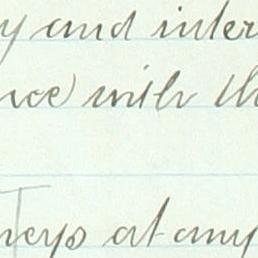 y and inter
nce with th
neys at any